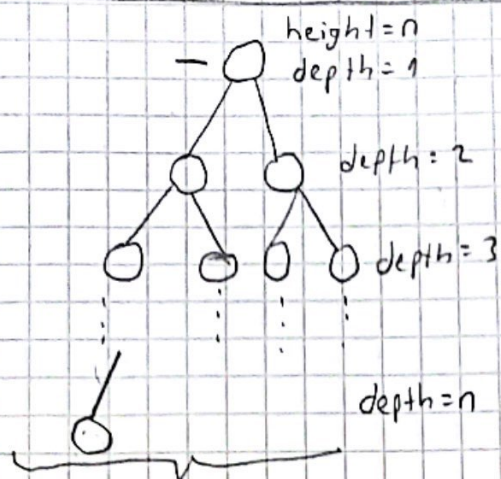 height=n
depth=1
depth=2
depth=3
depth=n